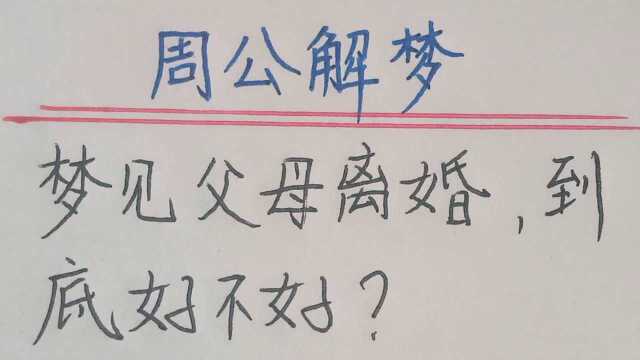 周公解梦
梦见父母离婚,到
底好不好?